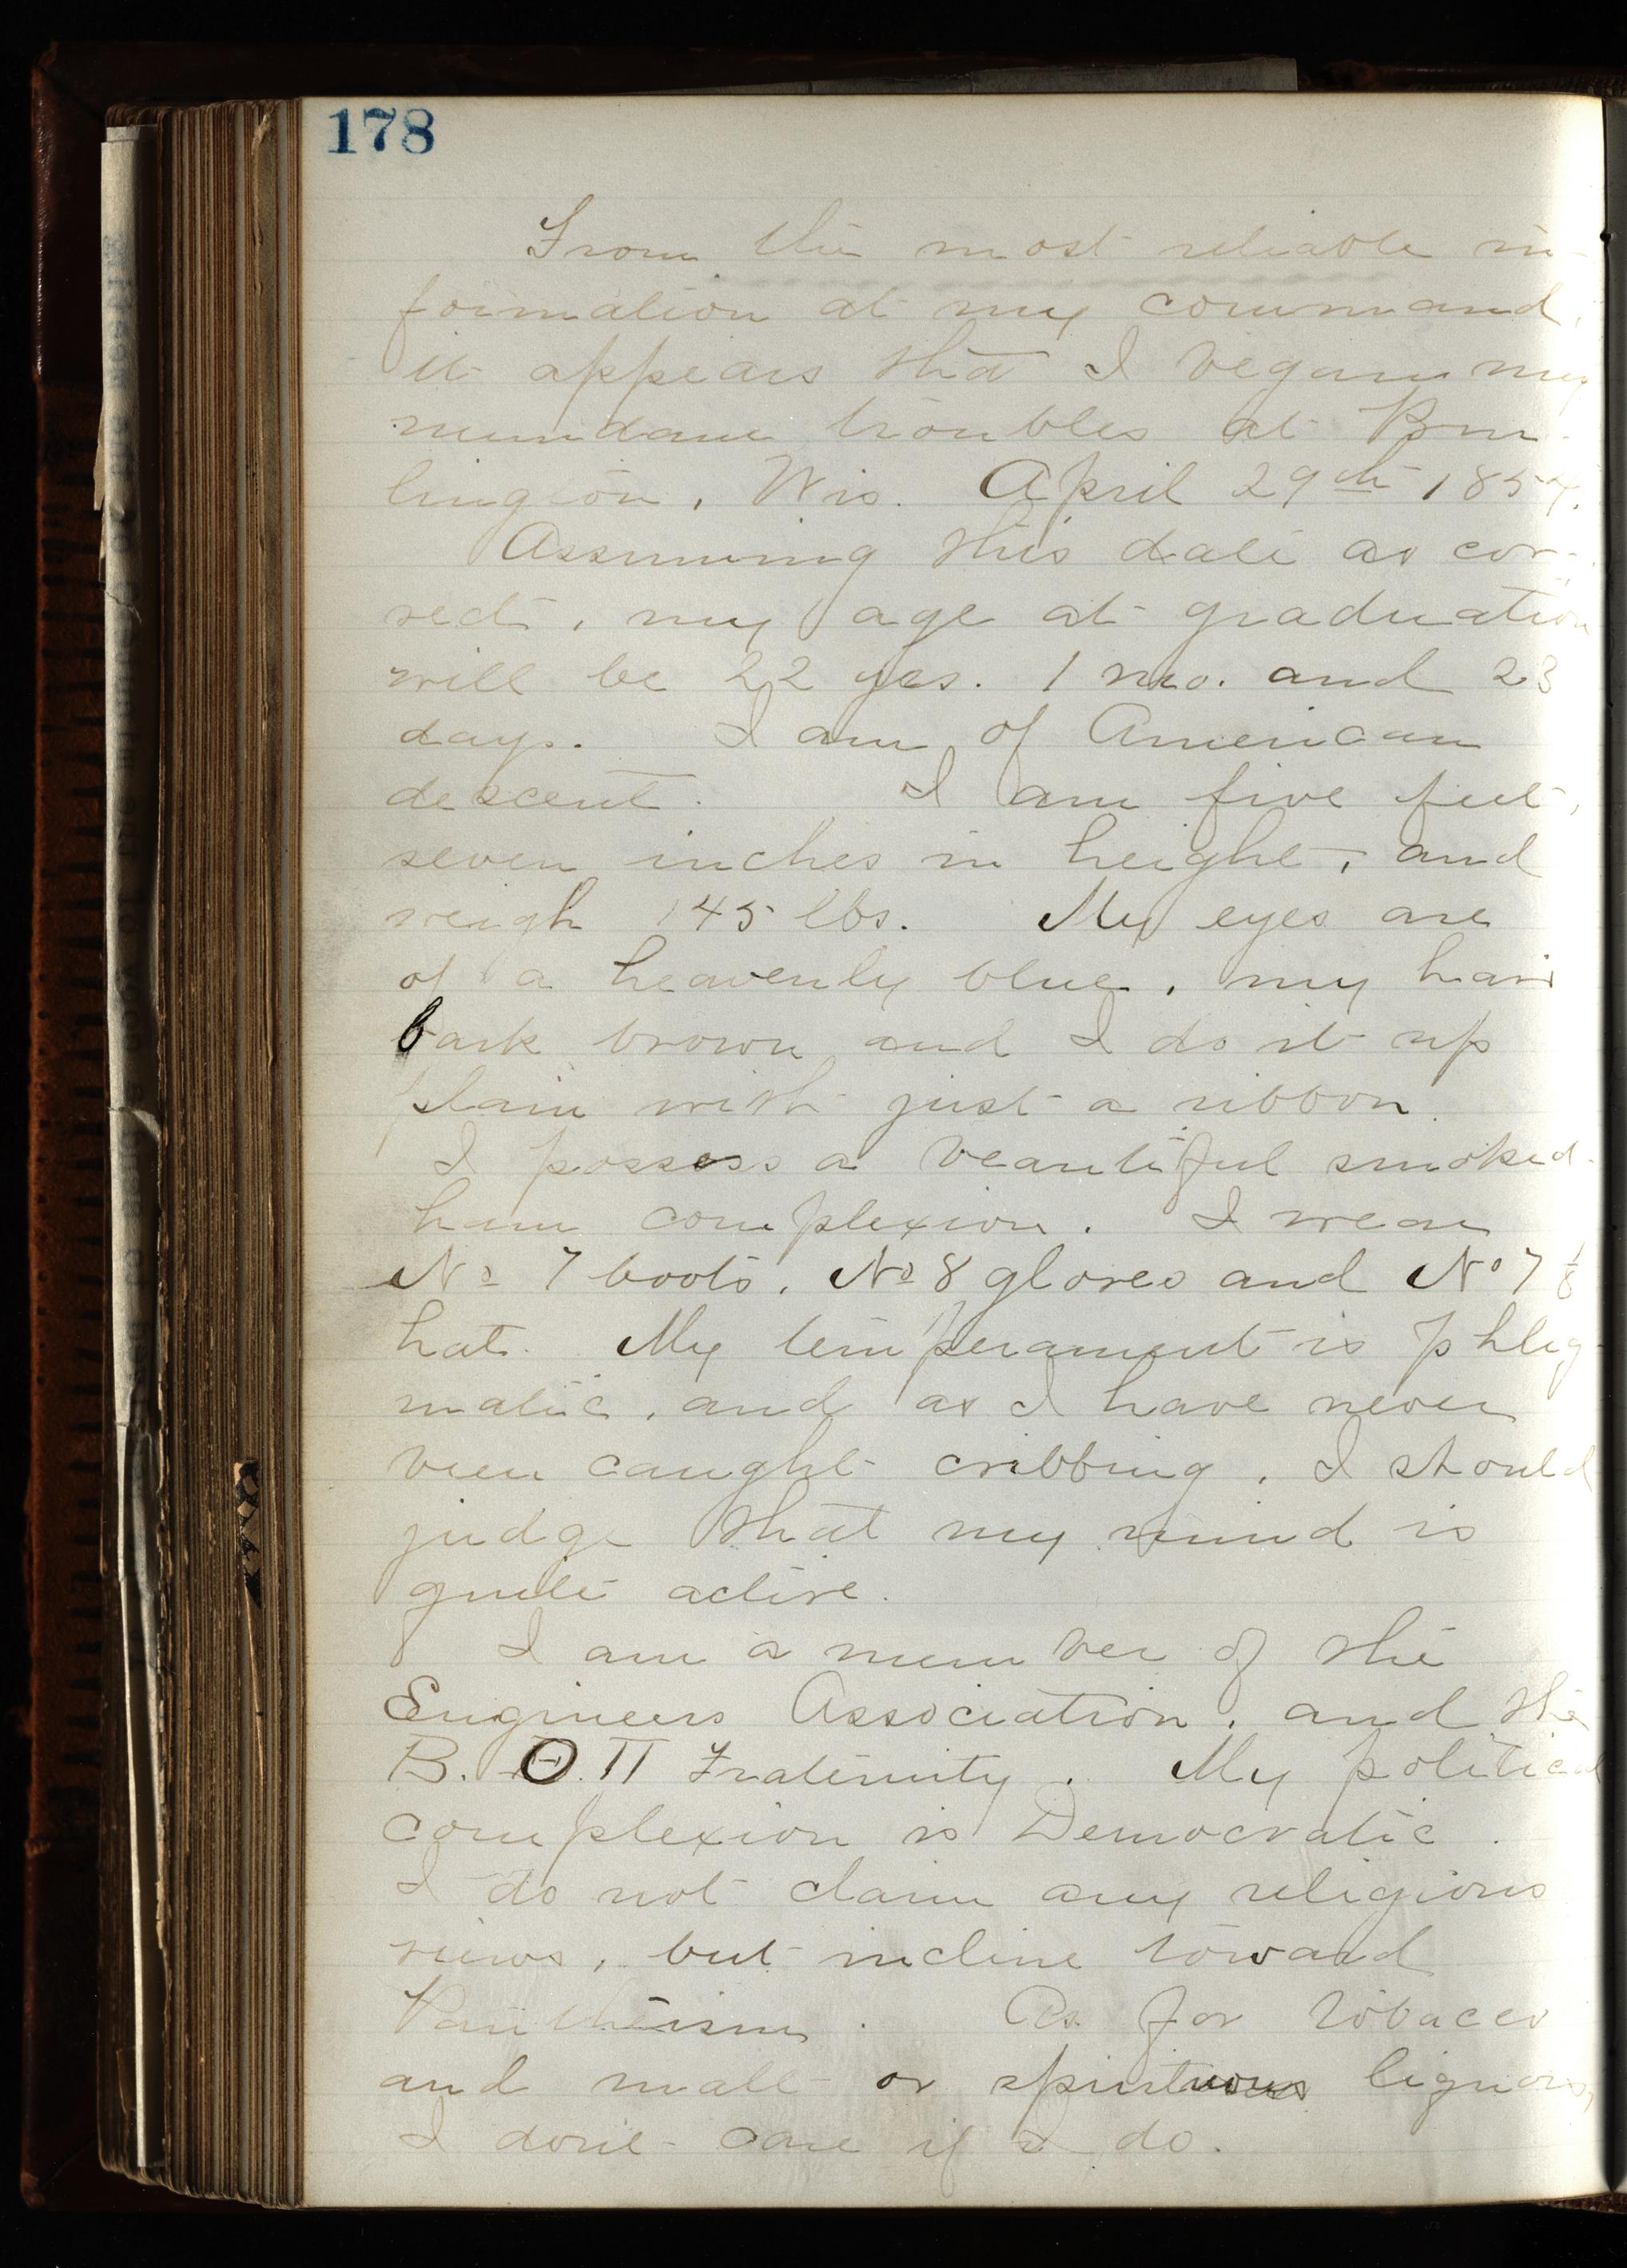 178
From the most reliable in-
formation at my command,
it appears that I began my
mundane troubles at Bur-
lington, Wis. April 29th 1854.
Assuming this date as cor-
rect, my age at graduation
will be 22 yrs. 1 mo. and 23
days. I am of American
descent. I am five feet,
seven inches in height, and
weigh 145 lbs. My eyes are
of a heavenly blue, my hair
bark brown and I do it up
plain with just a ribbon.
I possess a beautiful smoked-
ham complexion. I wear
No 7 boots, No 8 gloves and No 7 1/8
hat. My temperament is phleg-
matic, and as I have never
been caught cribbing, I should
judge that my mind is
quite active.
I am a member of the
Engineers Association, and the
B. Θ. Π Fraternity. My political
complexion is Democratic.
I do not claim any religious
views, but incline toward
Pantheism. As for tobacco
and malt or spirituous liquors,
I dont care if I do.